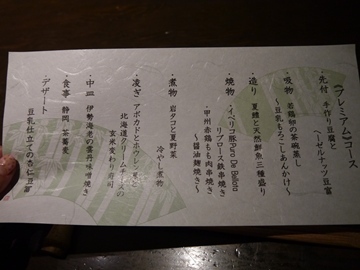 〈プレミアム〉コース
・先付 手作り豆腐と
ヘーゼルナッツ豆富
・吸物 若鶏卵の茶碗蒸し
～豆乳もろこしあんかけ～
・造り 夏鱧と天然鮮魚三種盛り
・焼物 ・イベリコ豚Puro De Bellota
リブロース鉄串焼き
・甲州赤鶏もも肉串焼き
～醤油麹焼き～
・煮物 岩タコと夏野菜
冷やし煮物
・凌ぎ アボカドとホウレン草と
北海道クリームチーズの
玄米変わり寿司
・中皿 伊勢海老の雲丹味噌焼き
・食事 静岡 茶蕎麦
・デザート
豆乳仕立ての杏仁豆富